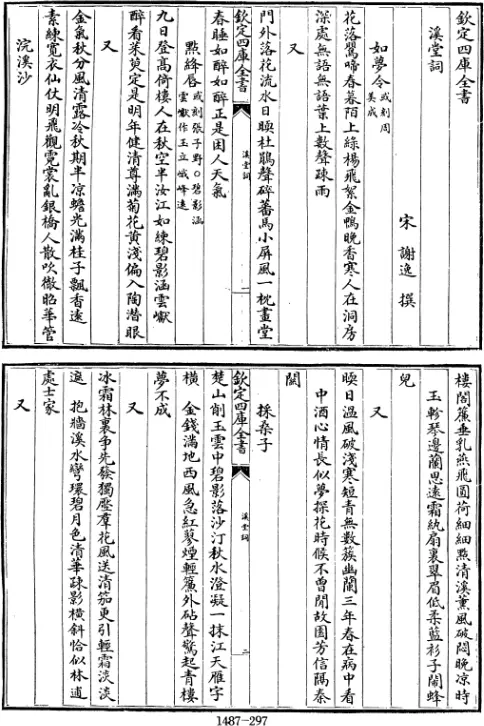 欽定四庫全書
溪堂詞
宋 謝逸 撰
如夢令 或刻周美成
花落鶯啼春暮陌上綠楊飛絮金鴨晚香寒人在洞房
深處無語無語葉上數聲疎雨
又
門外落花流水日暖杜鵑聲碎蕃馬小屏風一枕畫堂
欽定四庫全書 溪堂詞 一
春睡如醉如醉正是困人天氣
點絳唇 或刻張子野○碧影涵雲巘作玉立峨峰遠
九日登高倚樓人在秋空半汝江如練碧影涵雲巘
醉看茱萸定是明年健清尊滿菊花黃淺偏入陶潛眼
又
金氣秋分風清露冷秋期半凉蟾光滿桂子飄香遠
素練寬衣仙仗明飛觀霓裳亂銀橋人散吹徹昭華管
浣溪沙
樓閣簾垂乳燕飛圓荷細細點清溪薰風破悶晚凉時
玉軫琴邊蘭思遠霜紈扇裏翠眉低柔藍衫子鬧蜂
兒
又
暖日溫風破淺寒短青無數簇幽蘭三年春在病中看
中酒心情長似夢探花時候不曾閒故園芳信隔秦
關
採桑子
欽定四庫全書 溪堂詞 二
楚山削玉雲中碧影落沙汀秋水澄凝一抹江天雁字
橫 金錢滿地西風急紅蓼煙輕簾外砧聲驚起青樓
夢不成
又
冰霜林裏爭先發獨壓羣花風送清笳更引輕霜淡淡
遮 抱牆溪水彎環碧月色清華疎影橫斜恰似林逋
處士家
又
1487-297